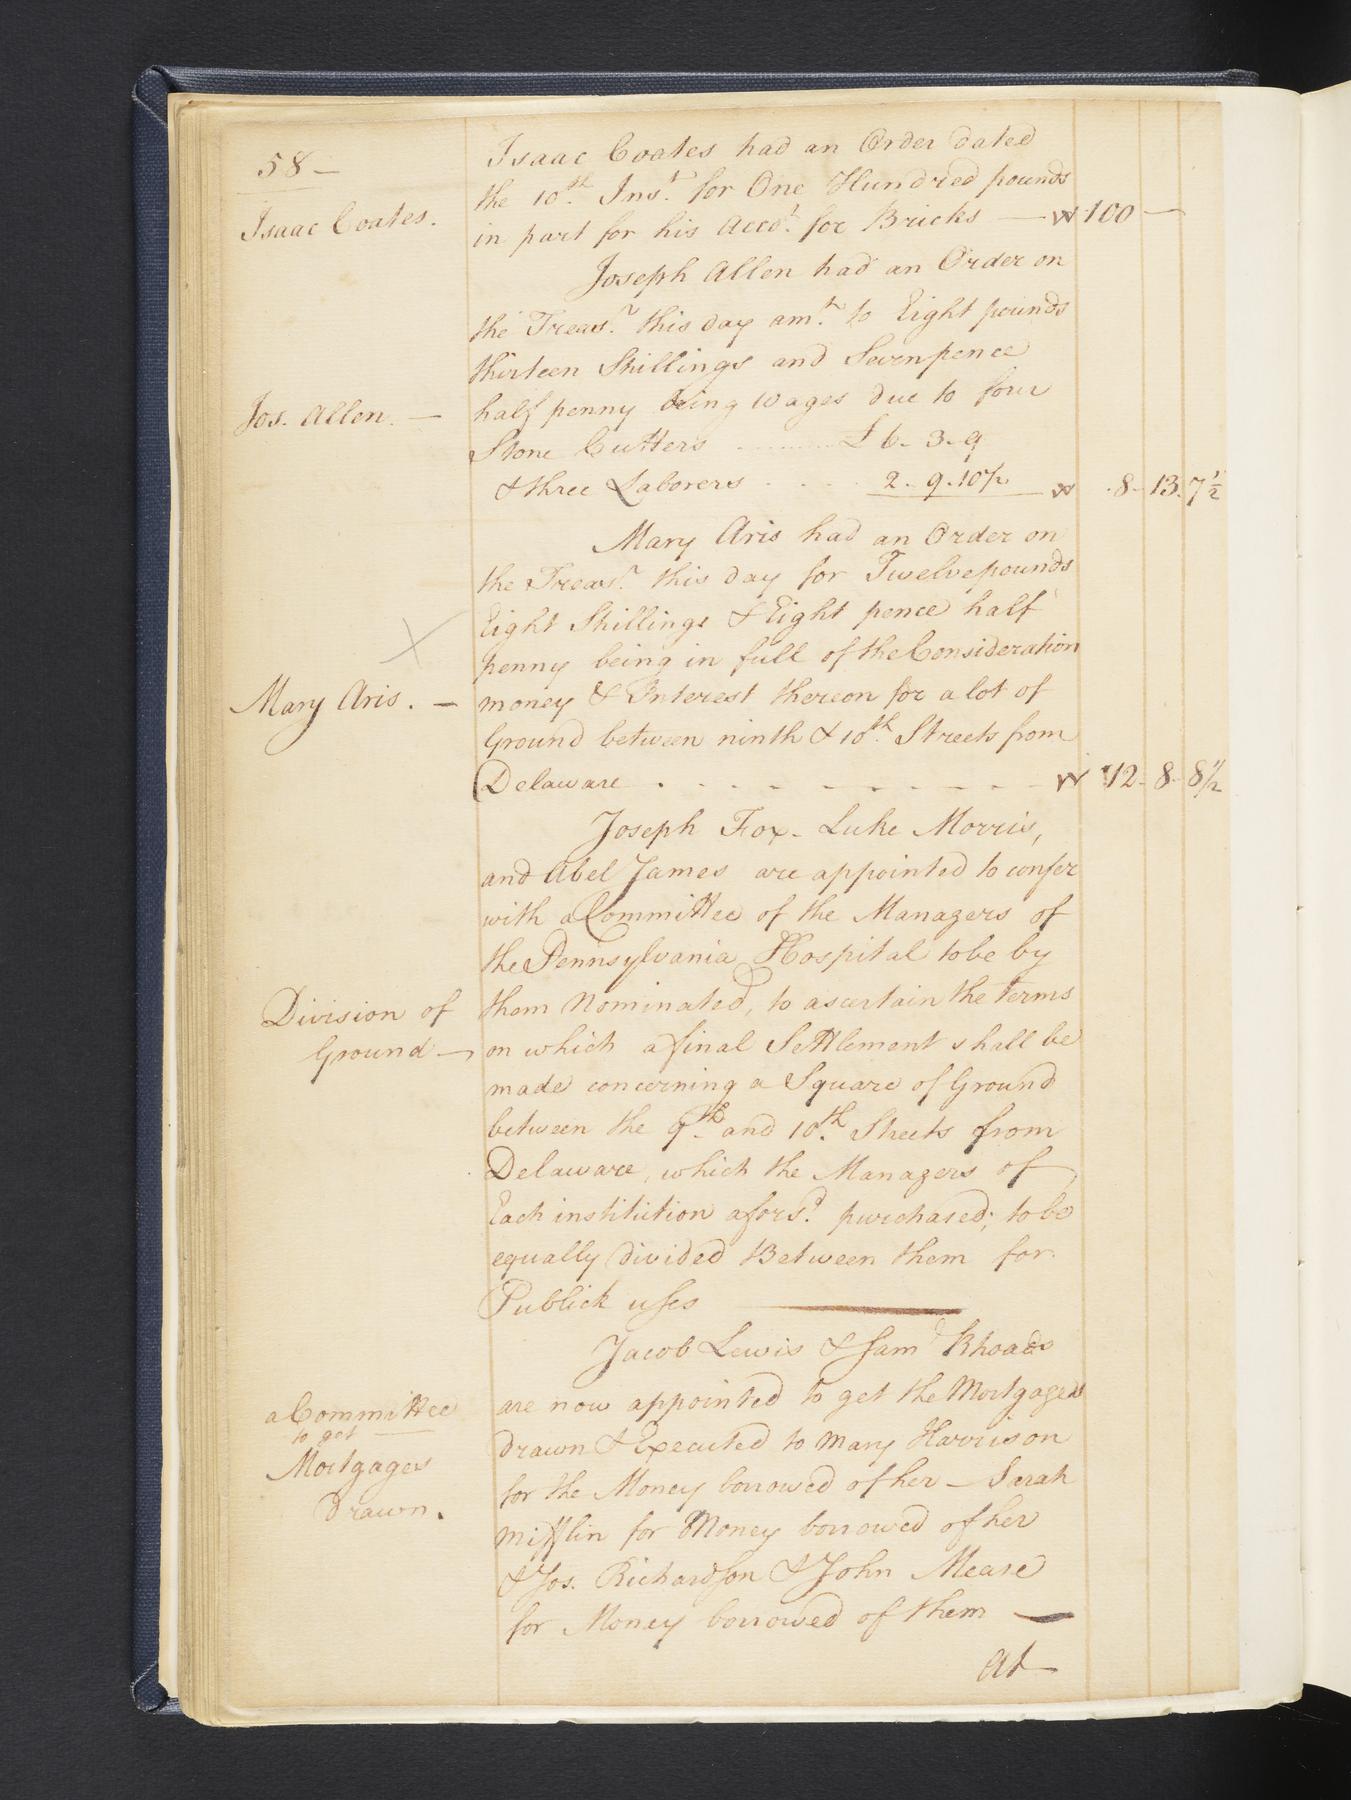 58-
Isaac Coates had an Order dated
the 10th. Inst. for One Hundred pounds
Isaac Coates.
in part for his Accot. for Bricks — 100 —
Joseph Allen had an Order on
the Treasr. this day amt. to Eight pounds
thirteen Shillings and Sevenpence
Jos. Allen. —
half penny being Wages due to four
Stone Cutters ........ £ 6 - 3 - 9
& three Laborers . . . . 2 - 9 . 10½ . 8 - 13. 7½
Mary Aris had an Order on
the Treasr. this day for Twelve pounds
Eight Shillings & Eight pence half
penny being in full of the Consideration
Mary Aris. —
money & Interest thereon for a lot of
Ground between ninth & 10th. Streets from
Delaware . - - - - - - - - 12 - 8 - 8½
Joseph Fox - Luke Morris,
and Abel James are appointed to confer
with a Committee of the Managers of
the Pennsylvania Hospital to be by
Division of
them Nominated, to ascertain the Terms
Ground —
on which a final Settlement shall be
made concerning a Square of Ground
between the 9th. and 10th. Streets from
Delaware, which the Managers of
Each institution aforsd. purchased; to be
equally divided Between them for
Publick uses
Jacob Lewis & Saml Rhoads
a Committee
to get
Mortgages
Drawn.
are now appointed to get the Mortgages
drawn & Executed to Mary Harrison
for the Money borrowed of her — Sarah
Mifflin for Money borrowed of her
& Jos. Richardson & John Mease
for Money borrowed of them —
At